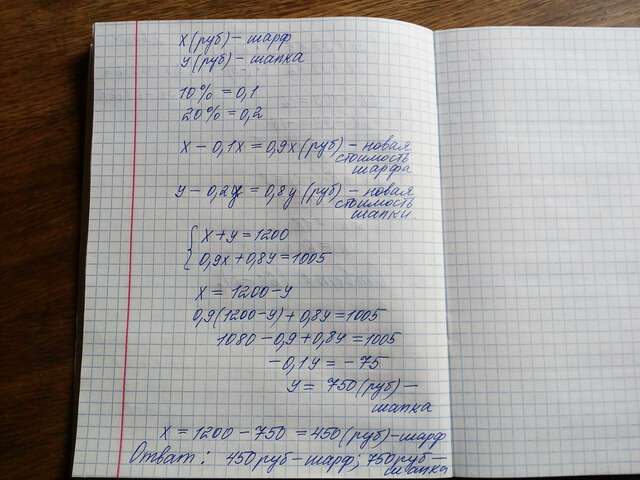 х (руб) – шарф
у (руб) – шапка
10% = 0,1
20% = 0,2
х – 0,1х = 0,9х (руб) – новая
стоимость
шарфа
у – 0,2у = 0,8у (руб) – новая
стоимость
шапки
х + у = 1200
0,9х + 0,8у = 1005
х = 1200 – у
0,9(1200 – у) + 0,8у = 1005
1080 – 0,9 + 0,8у = 1005
– 0,1у = – 75
у = 750 (руб) –
шапка
х = 1200 – 750 = 450 (руб) – шарф
Ответ: 450 руб – шарф; 750 руб –
шапка